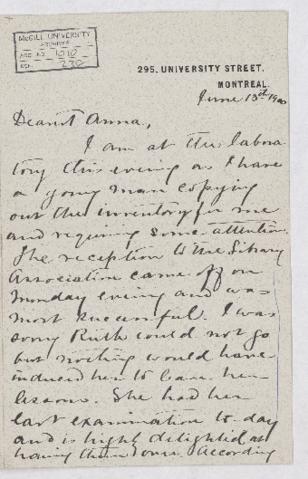 McGILL UNIVERSITY
ARCHIVES
ACC. NO. 1010
REF. 230
295, UNIVERSITY STREET.
MONTREAL.
June 13th 1900
Dearest Anna,
I am at the labora
tory this evening as I have
a young man copying
out the inventory for me
and requiring some attention.
The reception to the Library
Association came off on
Monday evening and was
most successful. I was
sorry Ruth could not go
but nothing would have
induced her to leave her
lessons. She had her
last examination to-day
and is highly delighted at
having them over. According